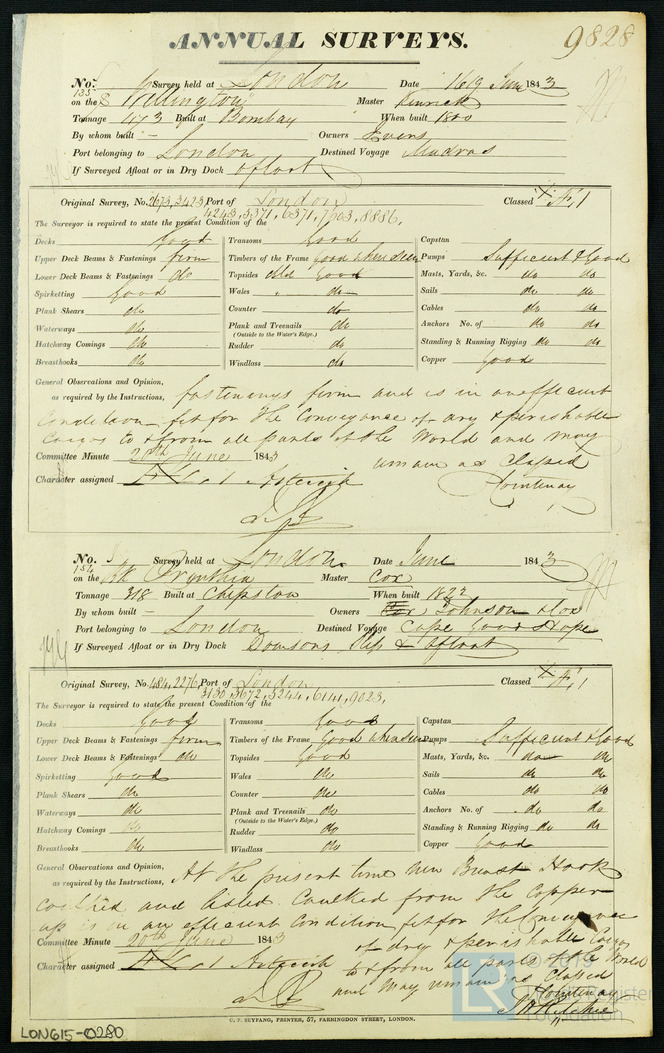 ANNUAL SURVEYS.
9828
No. Survey held at London Date 16 June 1843
135
on the S Wellington Master Kenrick
Tonnage 473 Built at Bombay When built 1800
By whom built - Owners Evens
Port belonging to London Destined Voyage Madras
If Surveyed Afloat or in Dry Dock afloat
Original Survey, No. 2673, 3423 Port of London Classed Æ 1
4243, 5371, 6371, 7603, 8886,
The Surveyor is required to state the present Condition of the
Decks Good Transoms Good Capstan
Upper Deck Beams & Fastenings firm Timbers of the Frame good when seen Pumps Sufficient & Good
Lower Deck Beams & Fastenings do Topsides Good Masts, Yards, &c. do do
Spirketting Good Wales do Sails do do
Plank Shears do Counter do Cables do do
Waterways do Plank and Treenails do Anchors No. of do do
(Outside to the Water's Edge.)
Hatchway Comings do Rudder do Standing & Running Rigging do do
Breasthooks do Windlass do Copper Good
General Observations and Opinion,
as required by the Instructions, fastenings firm and is in an efficient
Condition fit for the Conveyance of dry & perishable
Cargos to & from all parts of the World and may
remain as Classed
Committee Minute 20th June 1843
Character assigned Æ 1 Asterisk
Courtenay
No. Survey held at London Date June 1843
134
on the Bk Cynthia Master Cox
Tonnage 318 Built at Chepstow When built 1822
By whom built - Owners Johnson & Cox
Port belonging to London Destined Voyage Cape Good Hope
If Surveyed Afloat or in Dry Dock Dowsons Slip & Afloat
Original Survey, No. 484, 2276, Port of London Classed Æ 1
3130, 3672, 5244, 6141, 9023,
The Surveyor is required to state the present Condition of the
Decks Good Transoms Good Capstan
Upper Deck Beams & Fastenings firm Timbers of the Frame Good when seen Pumps Sufficient & Good
Lower Deck Beams & Fastenings do Topsides Good Masts, Yards, &c. do do
Spirketting Good Wales do Sails do do
Plank Shears do Counter do Cables do do
Waterways do Plank and Treenails do Anchors No. of do do
(Outside to the Water's Edge.)
Hatchway Comings do Rudder do Standing & Running Rigging do do
Breasthooks do Windlass do Copper Good
General Observations and Opinion,
as required by the Instructions, At the present time new Breast Hook
caulked and listed. Caulked from the Copper
up is in an efficient Condition fit for the Conveyance
of dry & perishable Cargos
to & from all parts of the World
and may remain as Classed
Committee Minute 20th June 1843
Character assigned Æ 1 Asterisk
Courtenay
Ritchie
C. F. SEYFANG, PRINTER, 57, FARRINGDON STREET, LONDON.
LON615-0280
LR
© 2019
Lloyd's Register
Foundation